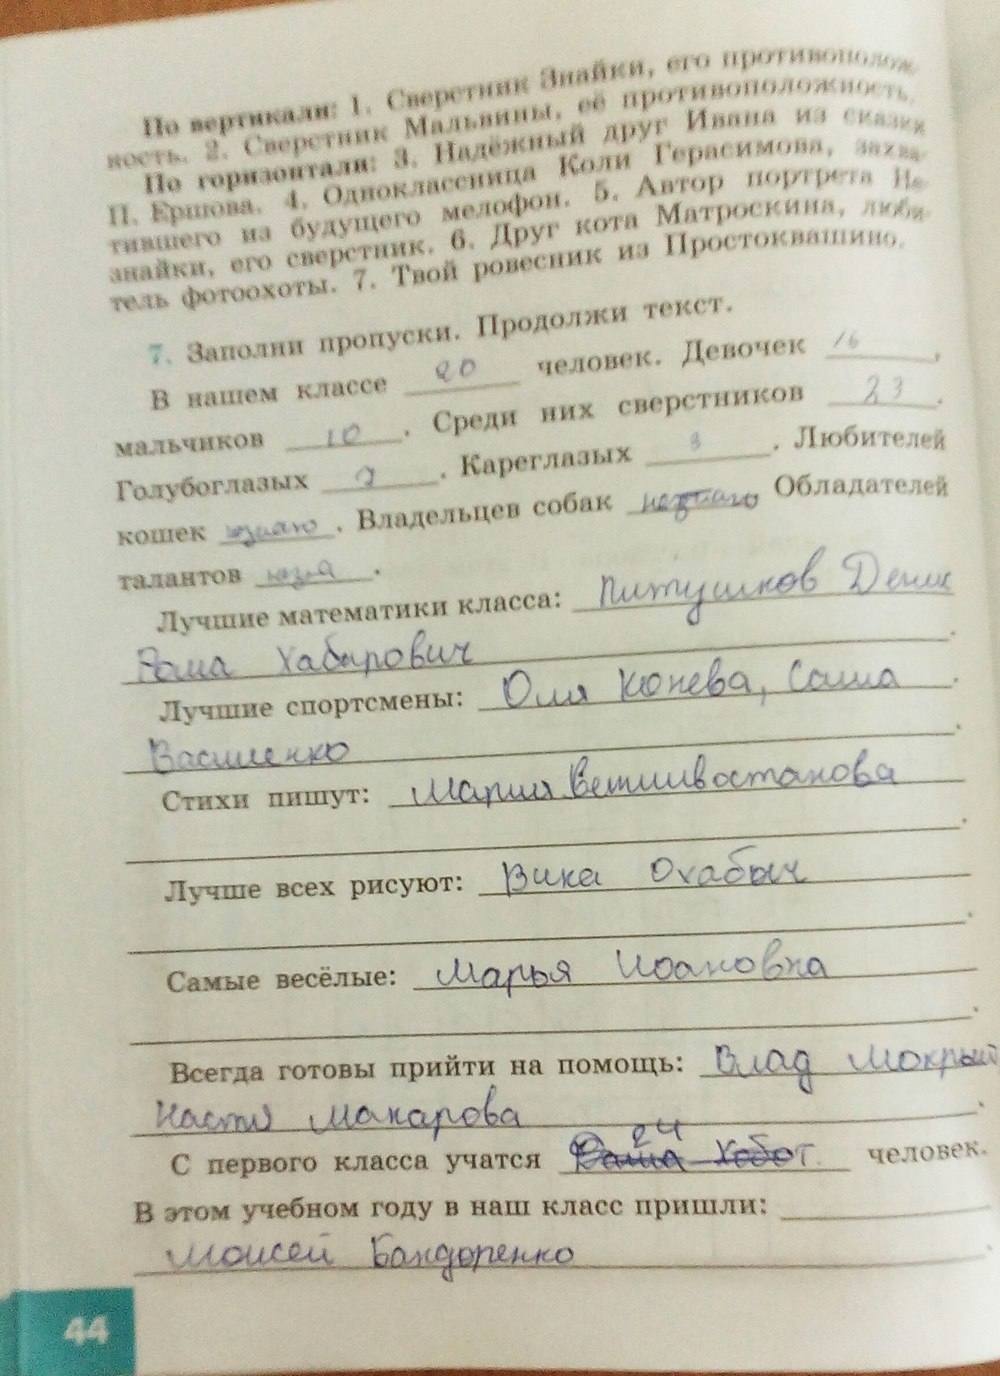 По вертикали: 1. Сверстник Знайки, его противополож-
ность. 2. Сверстник Мальвины, её противоположность.
По горизонтали: 3. Надёжный друг Ивана из сказки
П. Ершова. 4. Одноклассница Коли Герасимова, захва-
тившего из будущего мелофон. 5. Автор портрета Не-
знайки, его сверстник. 6. Друг кота Матроскина, люби-
тель фотоохоты. 7. Твой ровесник из Простоквашино.
7. Заполни пропуски. Продолжи текст.
В нашем классе 20 человек. Девочек 16,
мальчиков 10. Среди них сверстников 23.
Голубоглазых 7. Кареглазых 3. Любителей
кошек . Владельцев собак Обладателей
талантов .
Лучшие математики класса: Питушков Денис
Рома Хабирович.
Лучшие спортсмены: Оля Конева, Саша
Василенко.
Стихи пишут: Мария
Лучше всех рисуют: Вика Охабыч
Самые весёлые: Марья Иоановна
Всегда готовы прийти на помощь: Влад Мокрый
Настя Макарова.
С первого класса учатся 24 человек.
В этом учебном году в наш класс пришли:
Моисей Бандоренко.
44